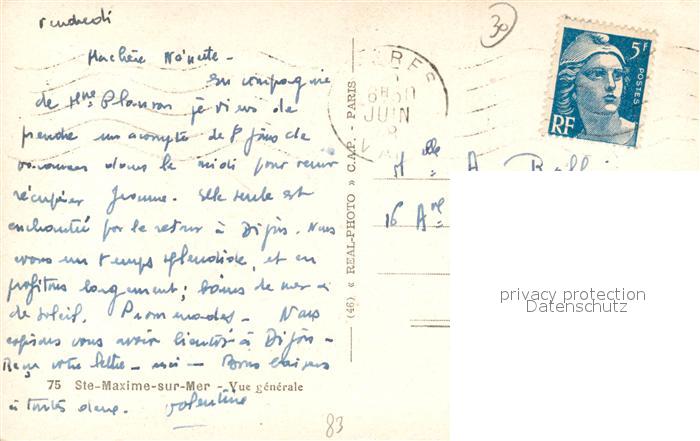 Vendredi
Ma chère Nénette -
En compagnie
de Mme je viens de
prendre un acompte de 8 jours de
vacances dans le midi pour venir
récupérer Jeanne. Elle seule est
enchantée par le retour à Dijon. Nous
avons un temps splendide, et en
profitons largement; bains de mer et
de soleil. Promenades - Nous
espérons vous avoir bientôt à Dijon -
Reçu votre lettre - merci - Bons baisers
75 Ste-Maxime-sur-Mer - Vue générale
à toutes deux. Valentine
83
(46) « REAL-PHOTO » C.A.P. - PARIS
30
6H30
JUIN
VAR
5F
POSTES
RF
Melle A.
16 Ave
privacy protection
Datenschutz